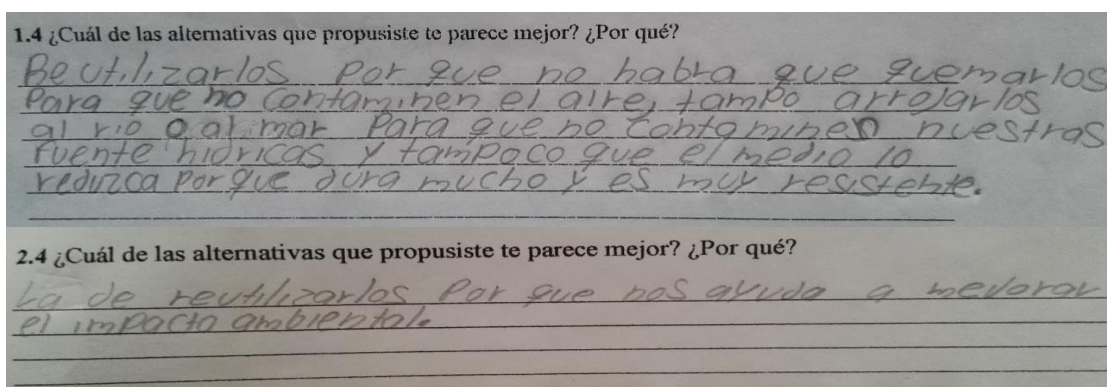 1.4 ¿Cuál de las alternativas que propusiste te parece mejor? ¿Por qué?
Beutilizarlos por que no habra que quemarlos
Para que no contaminen el aire, tampo arrojarlos
al rio o al mar para que no contaminen nuestras
fuente hidricas y tampoco que el medio lo
reduzca por que dura mucho y es muy resistente.
2.4 ¿Cuál de las alternativas que propusiste te parece mejor? ¿Por qué?
La de reutilizarlos Por que nos ayuda a mejorar
el impacto ambiental.